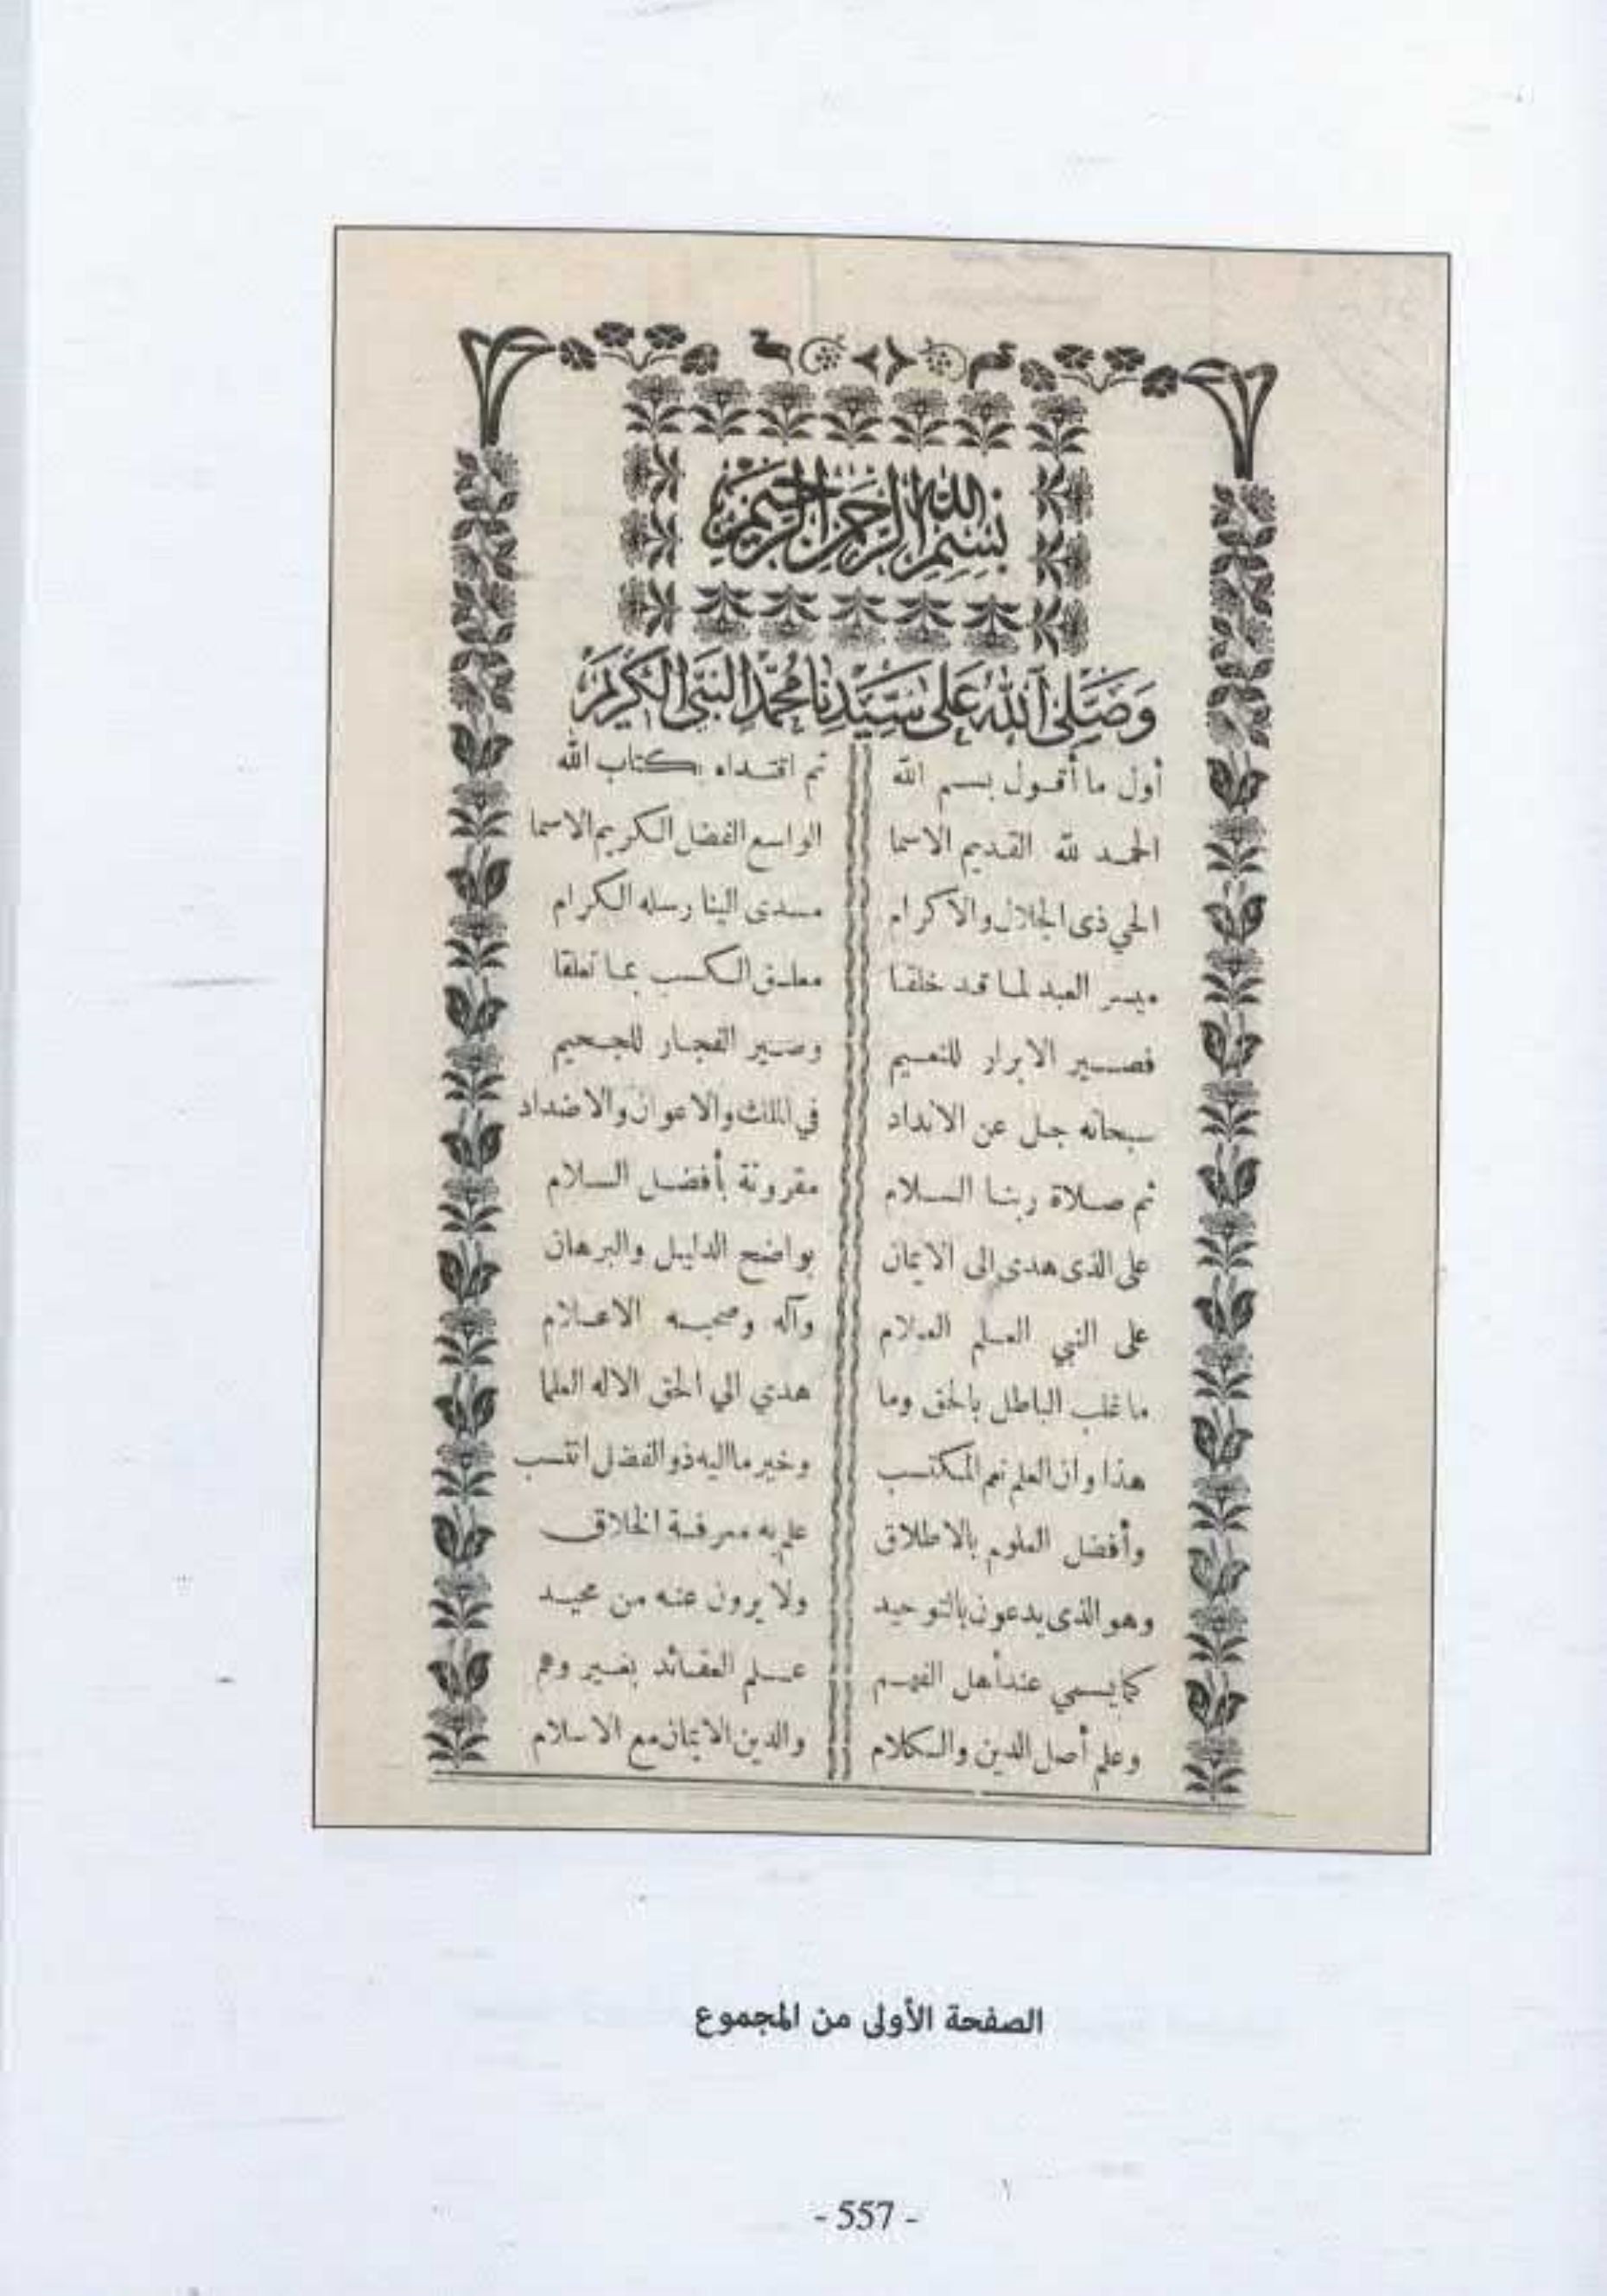 بِسْمِ اللهِ الرَّحْمٰنِ الرَّحِيمِ
وَصَلَّى اللهُ عَلَى سَيِّدِنَا مُحَمَّدٍ النَّبِيِّ الْكَرِيمِ
أول ما أقول بسم الله ثم اقتداء بكتاب الله
الحمد لله القديم الاسما الواسع الفضل الكريم الاسما
الحي ذى الجلال والاكرام مسدى الينا رسله الكرام
ميسر العبد لما قد خلقا معلق الكسب بما تعلقا
فصير الابرار للنعيم وصير الفجار للجحيم
سبحانه جل عن الانداد في الملك والاعوان والاضداد
ثم صلاة ربنا السلام مقرونة بأفضل السلام
على الذى هدى الى الايمان بواضح الدليل والبرهان
على النبي العلم العلام وآله وصحبه الاعلام
ما غلب الباطل بالحق وما هدي الي الحق الاله العلما
هذا وان العلم نعم المكتسب وخير ما اليه ذو الفضل انتسب
وأفضل العلوم بالاطلاق علم به معرفة الخلاق
وهو الذى يدعون بالتوحيد ولا يرون عنه من محيد
كما يسمي عند أهل الفهم علم العقائد بغير وهم
وعلم أصل الدين والكلام والدين الايمان مع الاسلام
الصفحة الأولى من المجموع
- 557 -